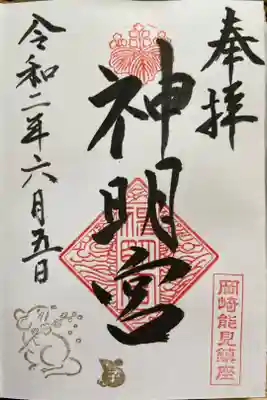 奉拝
神明宮
岡崎能見鎮座
令和二年六月五日